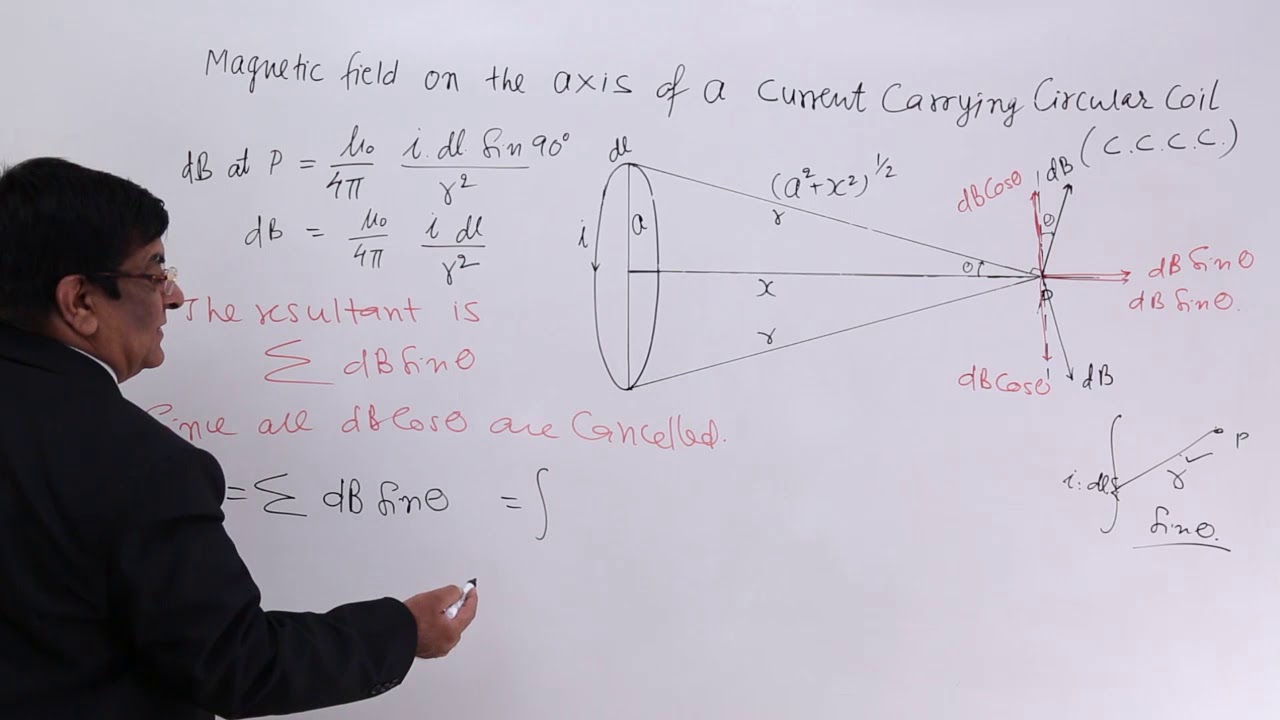 Magnetic field on the axis of a Current Carrying Circular Coil
(C.C.C.C.)
dB at P = μ₀/4π i.dl Sin 90°/r²
dB = μ₀/4π i dl/r²
The resultant is
∑ dB Sinθ
Since all dB Cosθ are Cancelled.
= ∑ dB Sinθ = ∫
dl
a
i
(a²+x²)^1/2
r
x
r
θ
dB Cosθ
dB
θ
dB Sinθ
dB Sinθ.
dB Cosθ
dB
P
i.dl
r
Sinθ.